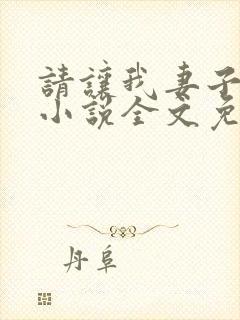 請讓我妻子
小說全文免
丹阜